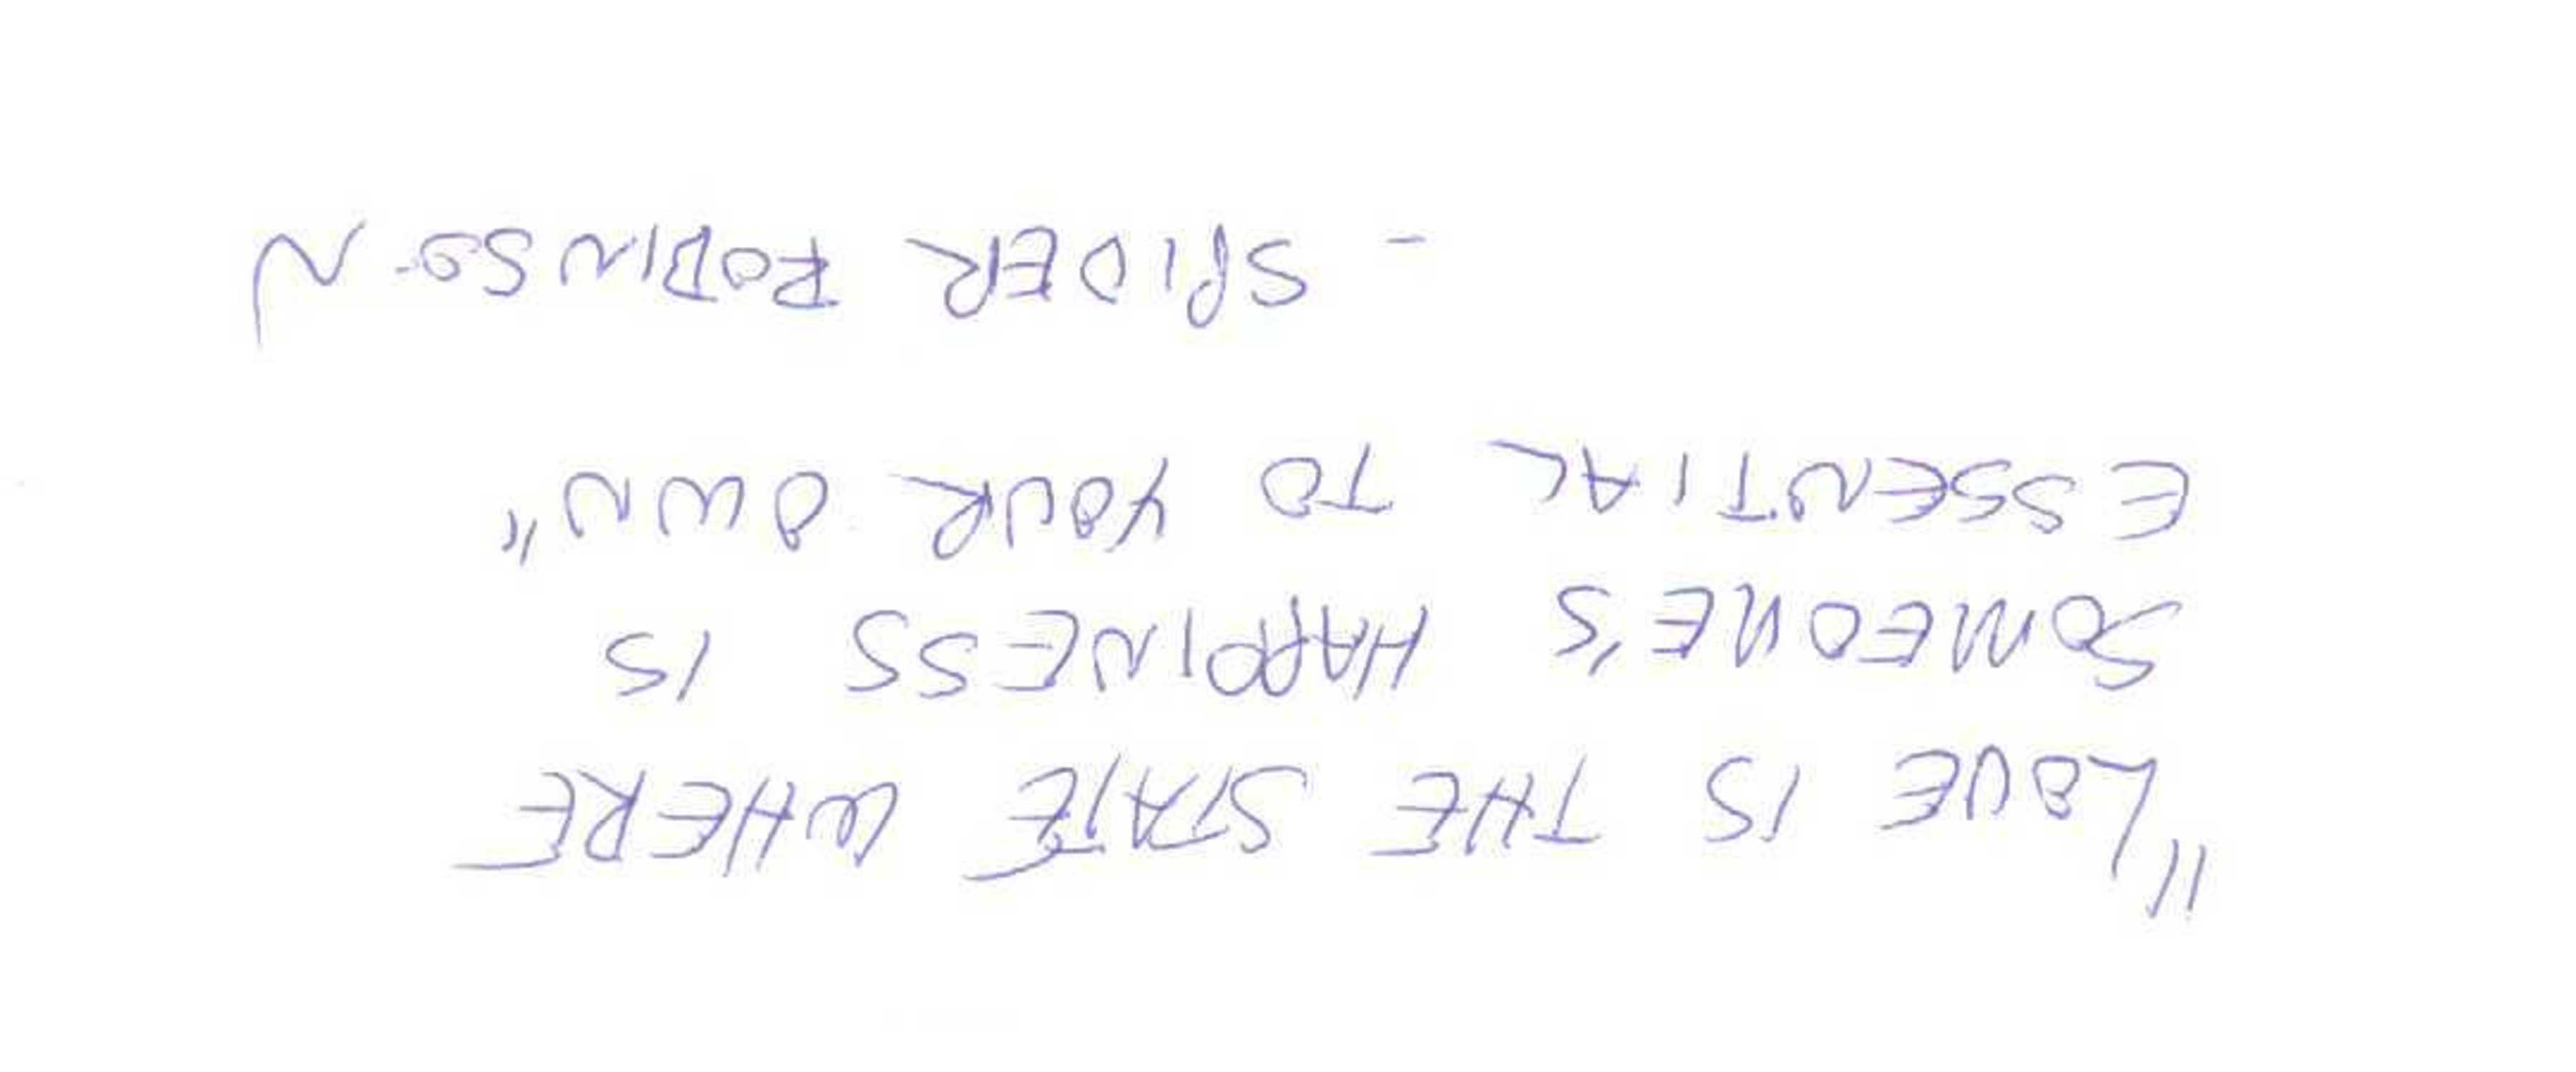 "LOVE IS THE STATE WHERE
SOMEONE'S HAPPINESS IS
ESSENTIAL TO YOUR OWN"
- SPIDER ROBINSON